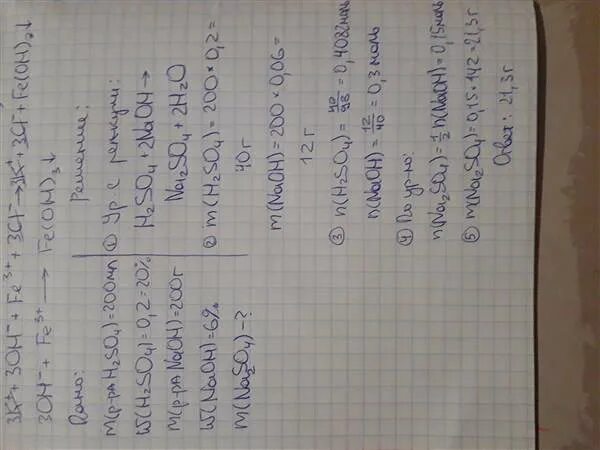 3K⁺ + 3OH⁻ + Fe³⁺ + 3Cl⁻ → 3K⁺ + 3Cl⁻ + Fe(OH)₃↓
3OH⁻ + Fe³⁺ → Fe(OH)₃↓
Дано:
m(р-ра H₂SO₄) = 200мл
W(H₂SO₄) = 0,2 = 20%
m(р-ра NaOH) = 200г
W(NaOH) = 6%
m(Na₂SO₄) - ?
Решение:
① Ур е реакции:
H₂SO₄ + 2NaOH →
Na₂SO₄ + 2H₂O
② m(H₂SO₄) = 200 * 0,2 =
40г
m(NaOH) = 200 * 0,06 =
12 г
③ n(H₂SO₄) = 40/98 = 0,4082 моль
n(NaOH) = 12/40 = 0,3 моль
④ По ур-ю:
n(Na₂SO₄) = 1/2 n(NaOH) = 0,15 моль
⑤ m(Na₂SO₄) = 0,15 * 142 = 21,3 г
Ответ: 21,3 г